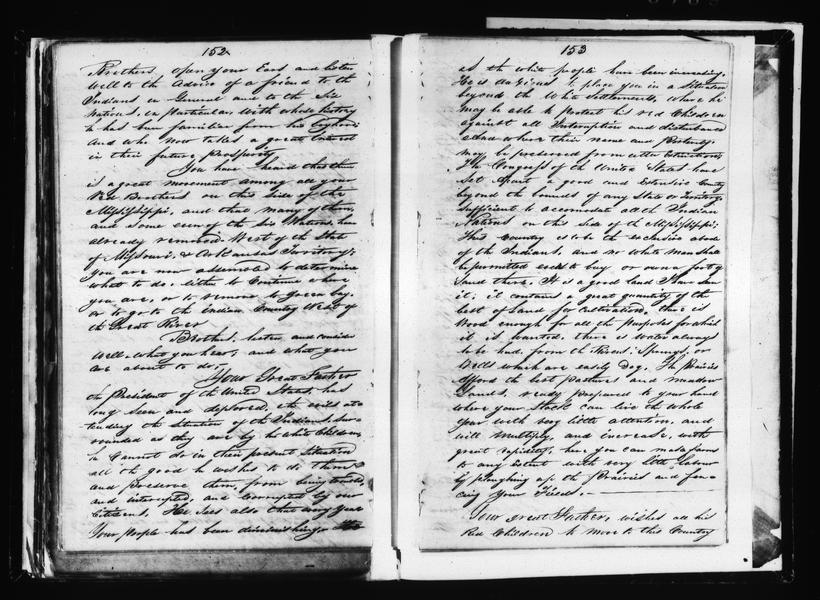 152
Brothers, open your Ears and listen
well to the Advice of a friend to the
Indians in General and to the Six
Nations, in particular, with whose history
he has been familiar from his
And who Now takes a great Interest
in their future prosperity
You have heard that there
is a great movement among all your
Red Brothers on this side of the
Mississippi, and that many of them
and some even of the Six Nations, have
already removed West of the State
of Missouri, & Arkansas Territory;
you are now assembled to determine
what to do, either to Continue where
you are, or to remove to Green bay,
or to go to the Indian Country West of
the Great River
Brothers, listen, and consider
well, what you hear, and what you
are about to do,
Your Great Father
the President of the United States, has
long seen and deplored, the evils at-
tending the Situation of the Indians, sur-
rounded as they are by his white Children,
he Cannot do in their present Situation
all the good he wishes to do them
and preserve them, from being
and interrupted, and corrupted by our
Citizens. He Sees also that every year
Your people has been diminishing
153
as the white people have been increasing.
He is to place you in a Situation
beyond the White Settlements, where he
may be able to protect his red Children
against all Interruption and disturbance
and where their name and Posterity
may be preserved from utter Extinction,
The Congress of the United States have
Set Apart a good and Extensive County
beyond the bounds of any State or Territory
sufficient to accomodate all the Indian
Nations on this Side of the Mississippi;
This Country is to be the exclusive abode
of the Indians, and no White Man shall
be permitted to buy or own a foot of
Land there. It is a good land I have seen
it; it contains a great quantity of the
best of Land for Cultivation, there is
Wood enough for all the purposes for which
it is wanted, there is water always
to be had, from the Rivers, Springs, or
Wells which are easily Dug. The Prairies
afford the best pasture and meadow
Lands, ready prepared to your hand
where your Stock can live the whole
year with very little attention, and
will Multiply, and increase, with
great rapidity, here you can make farms
to any Extent with very little labour
by ploughing up the Prairies and fen-
cing Your Fields. —
Your great Father, wishes all his
Red Children to move to this Country